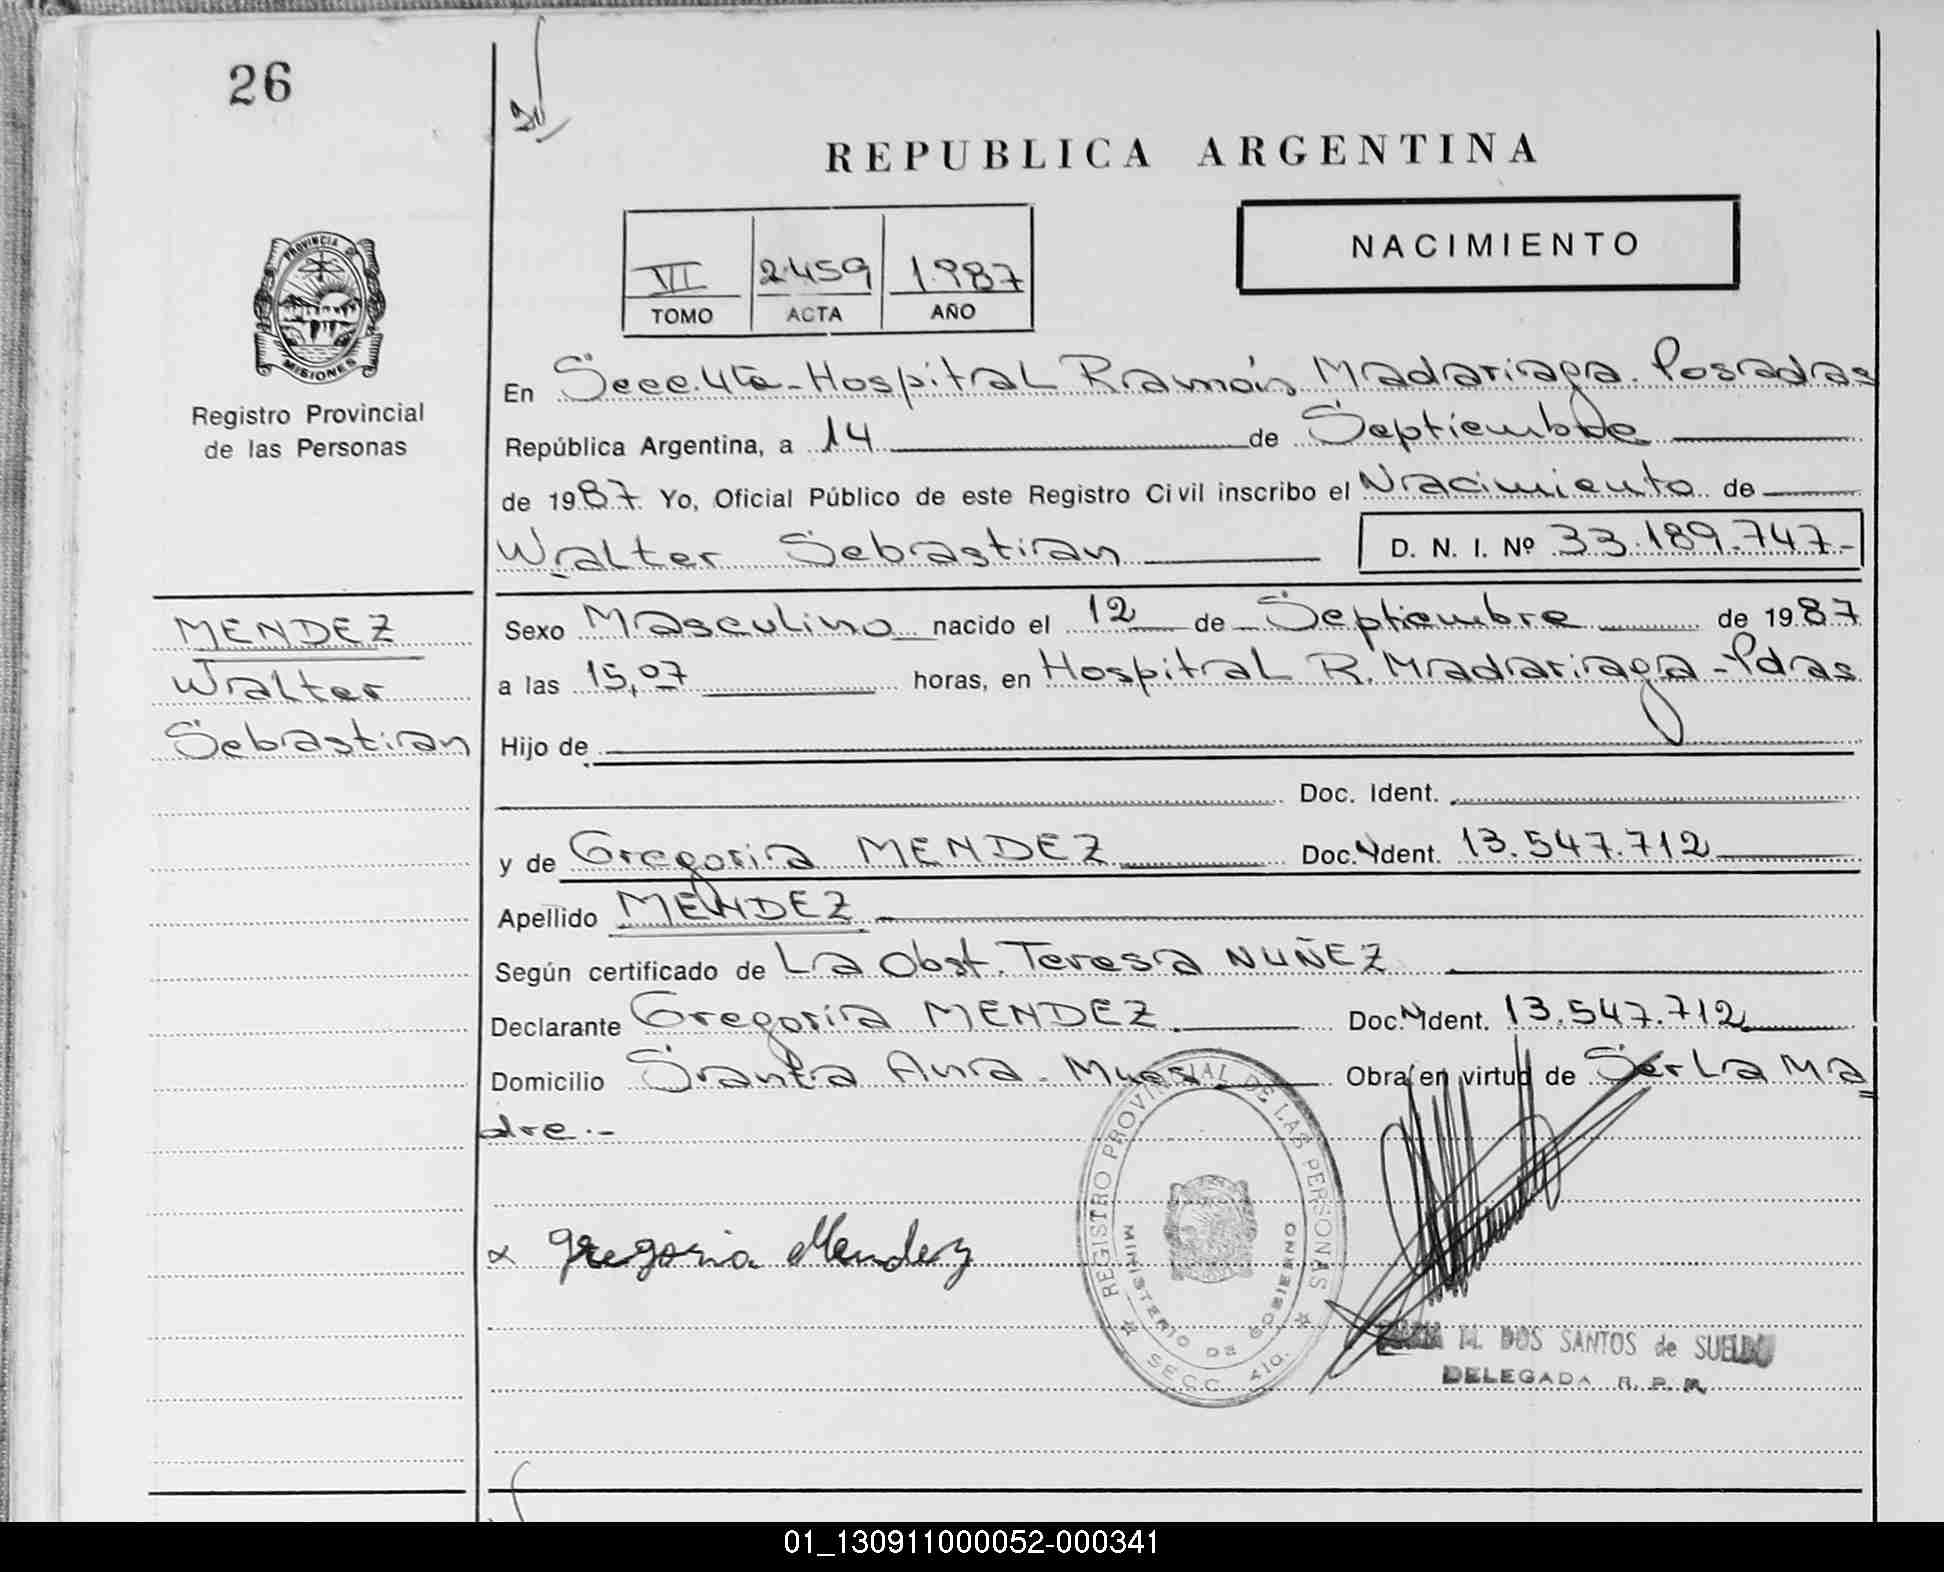 26
REPUBLICA ARGENTINA
VII 2459 1.987
TOMO ACTA AÑO
NACIMIENTO
PROVINCIA DE MISIONES
Registro Provincial
de las Personas
En Secc. 4ta - Hospital Ramón Madariaga. Posadas
República Argentina, a 14 de Septiembre
de 1987. Yo, Oficial Público de este Registro Civil inscribo el Nacimiento de
Walter Sebastian D. N. I. Nº 33.189.747-
MENDEZ
Walter
Sebastian
Sexo Masculino nacido el 12 de Septiembre de 1987
a las 15,07 horas, en Hospital R. Madariaga - Pdas
Hijo de
Doc. Ident.
y de Gregoria MENDEZ Doc. Ident. 13.547.712
Apellido MENDEZ
Según certificado de La Obst. Teresa NUÑEZ
Declarante Gregoria MENDEZ Doc. Ident. 13.547.712
Domicilio Santa Ana - Mnes Obra en virtud de Ser La Ma
dre.-
Gregoria Mendez
REGISTRO PROVINCIAL DE LAS PERSONAS
MINISTERIO DE GOBIERNO
SECC. 4ta.
M. DOS SANTOS de SUELDO
DELEGADA R. P. P.
01_130911000052-000341